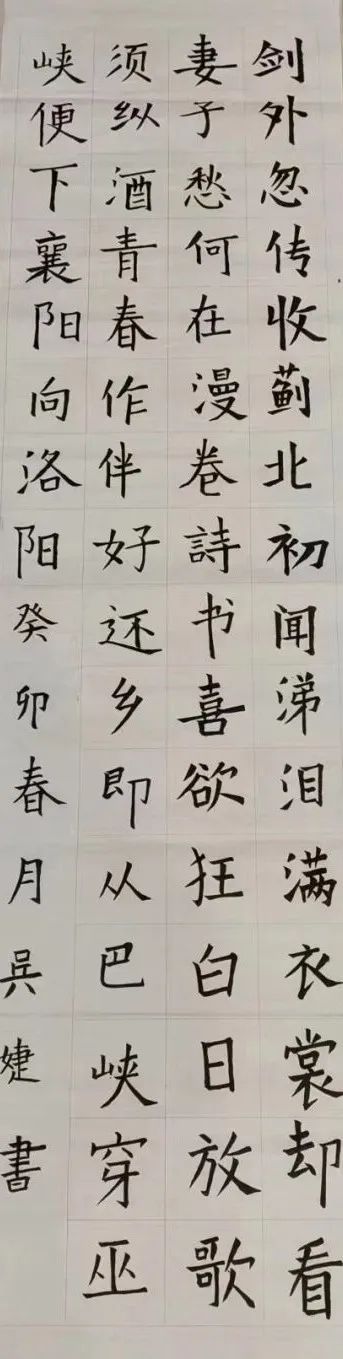 剑外忽传收蓟北初闻涕泪满衣裳却看
妻子愁何在漫卷詩书喜欲狂白日放歌
须纵酒青春作伴好还乡即从巴峡穿巫
峡便下襄阳向洛阳癸卯春月吴婕書